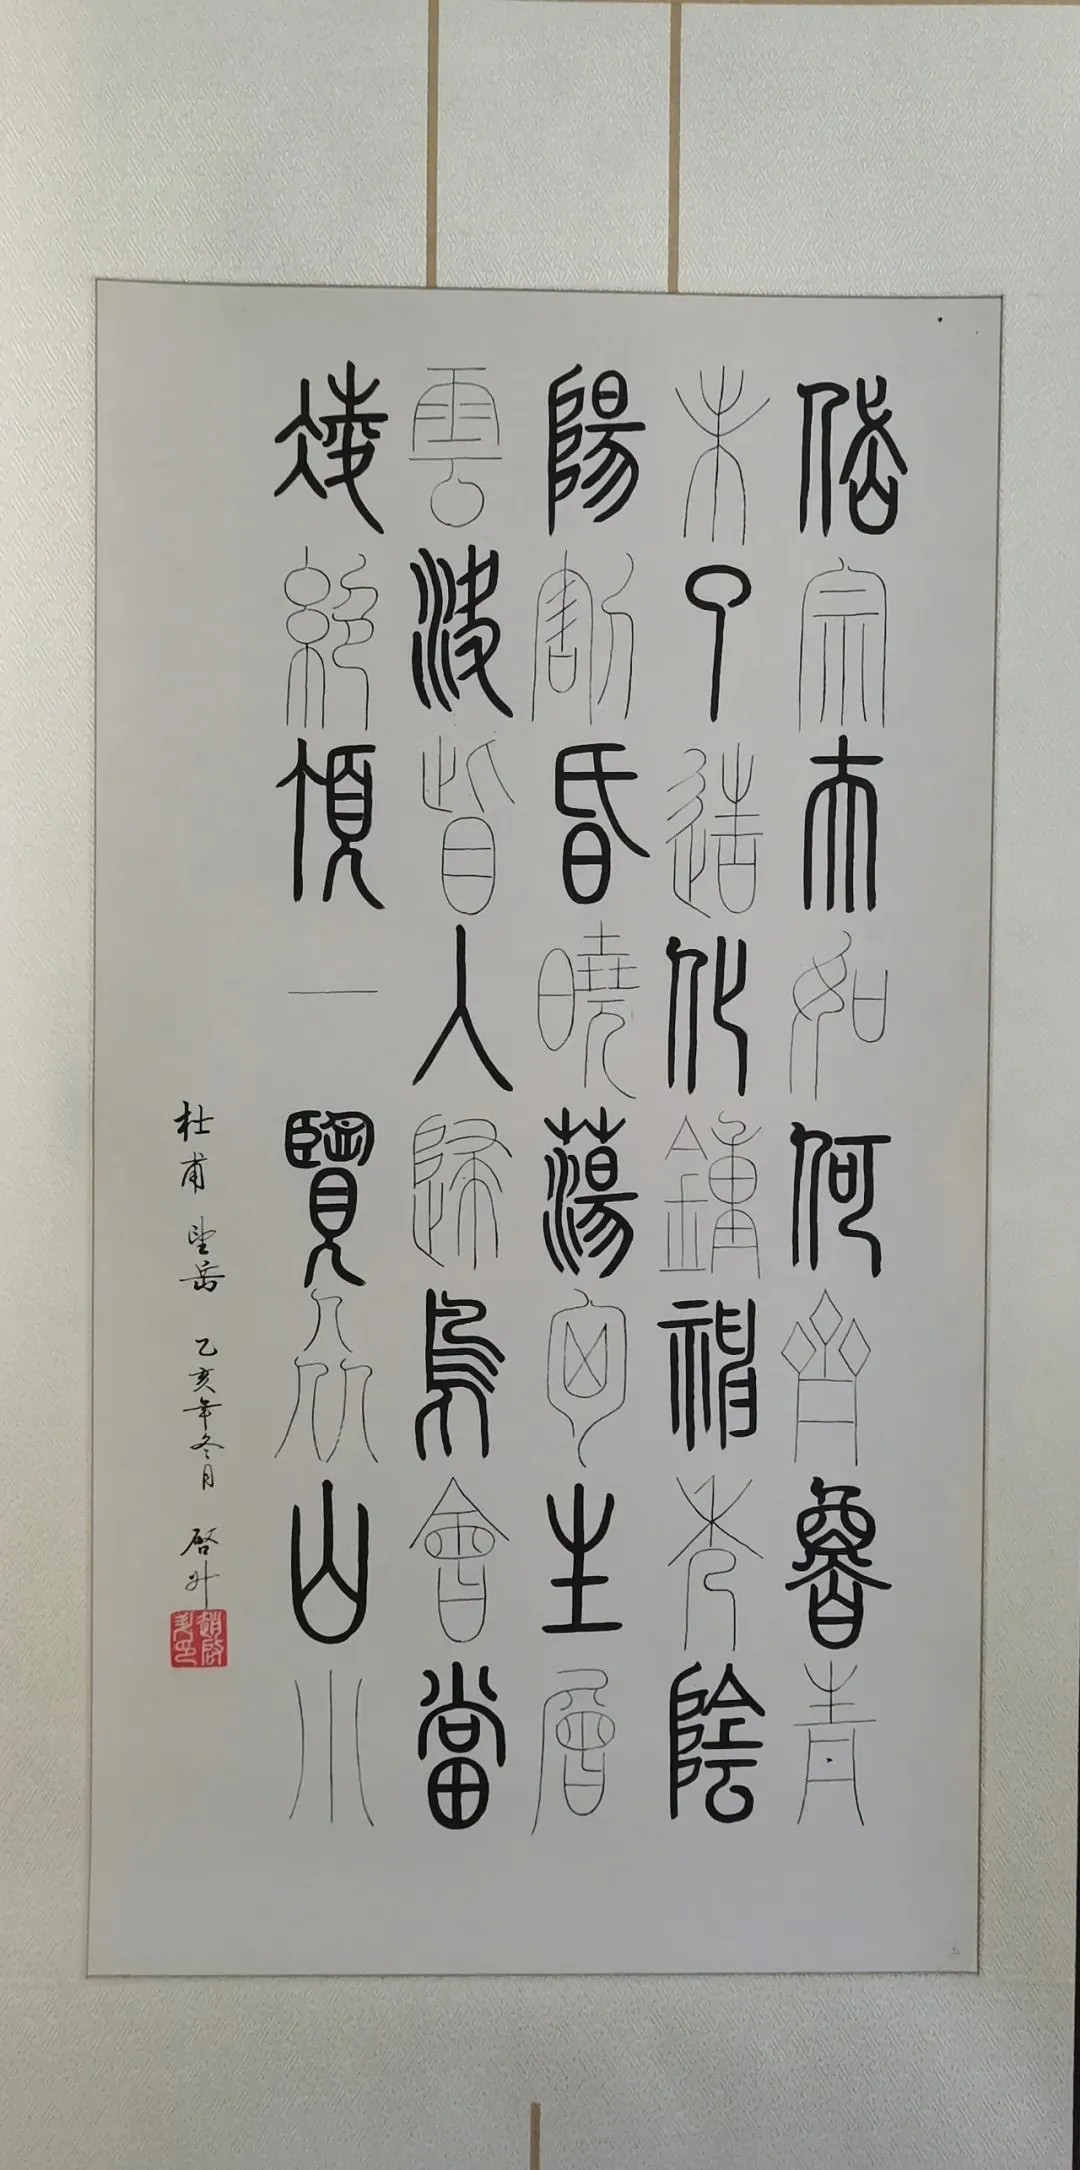 岱宗夫如何齊魯青
未了造化鍾神秀陰
陽割昏曉蕩胷生層
雲決眥入歸鳥會當
凌絕頂一覽眾山小
杜甫 望岳 乙亥年冬月 啓升